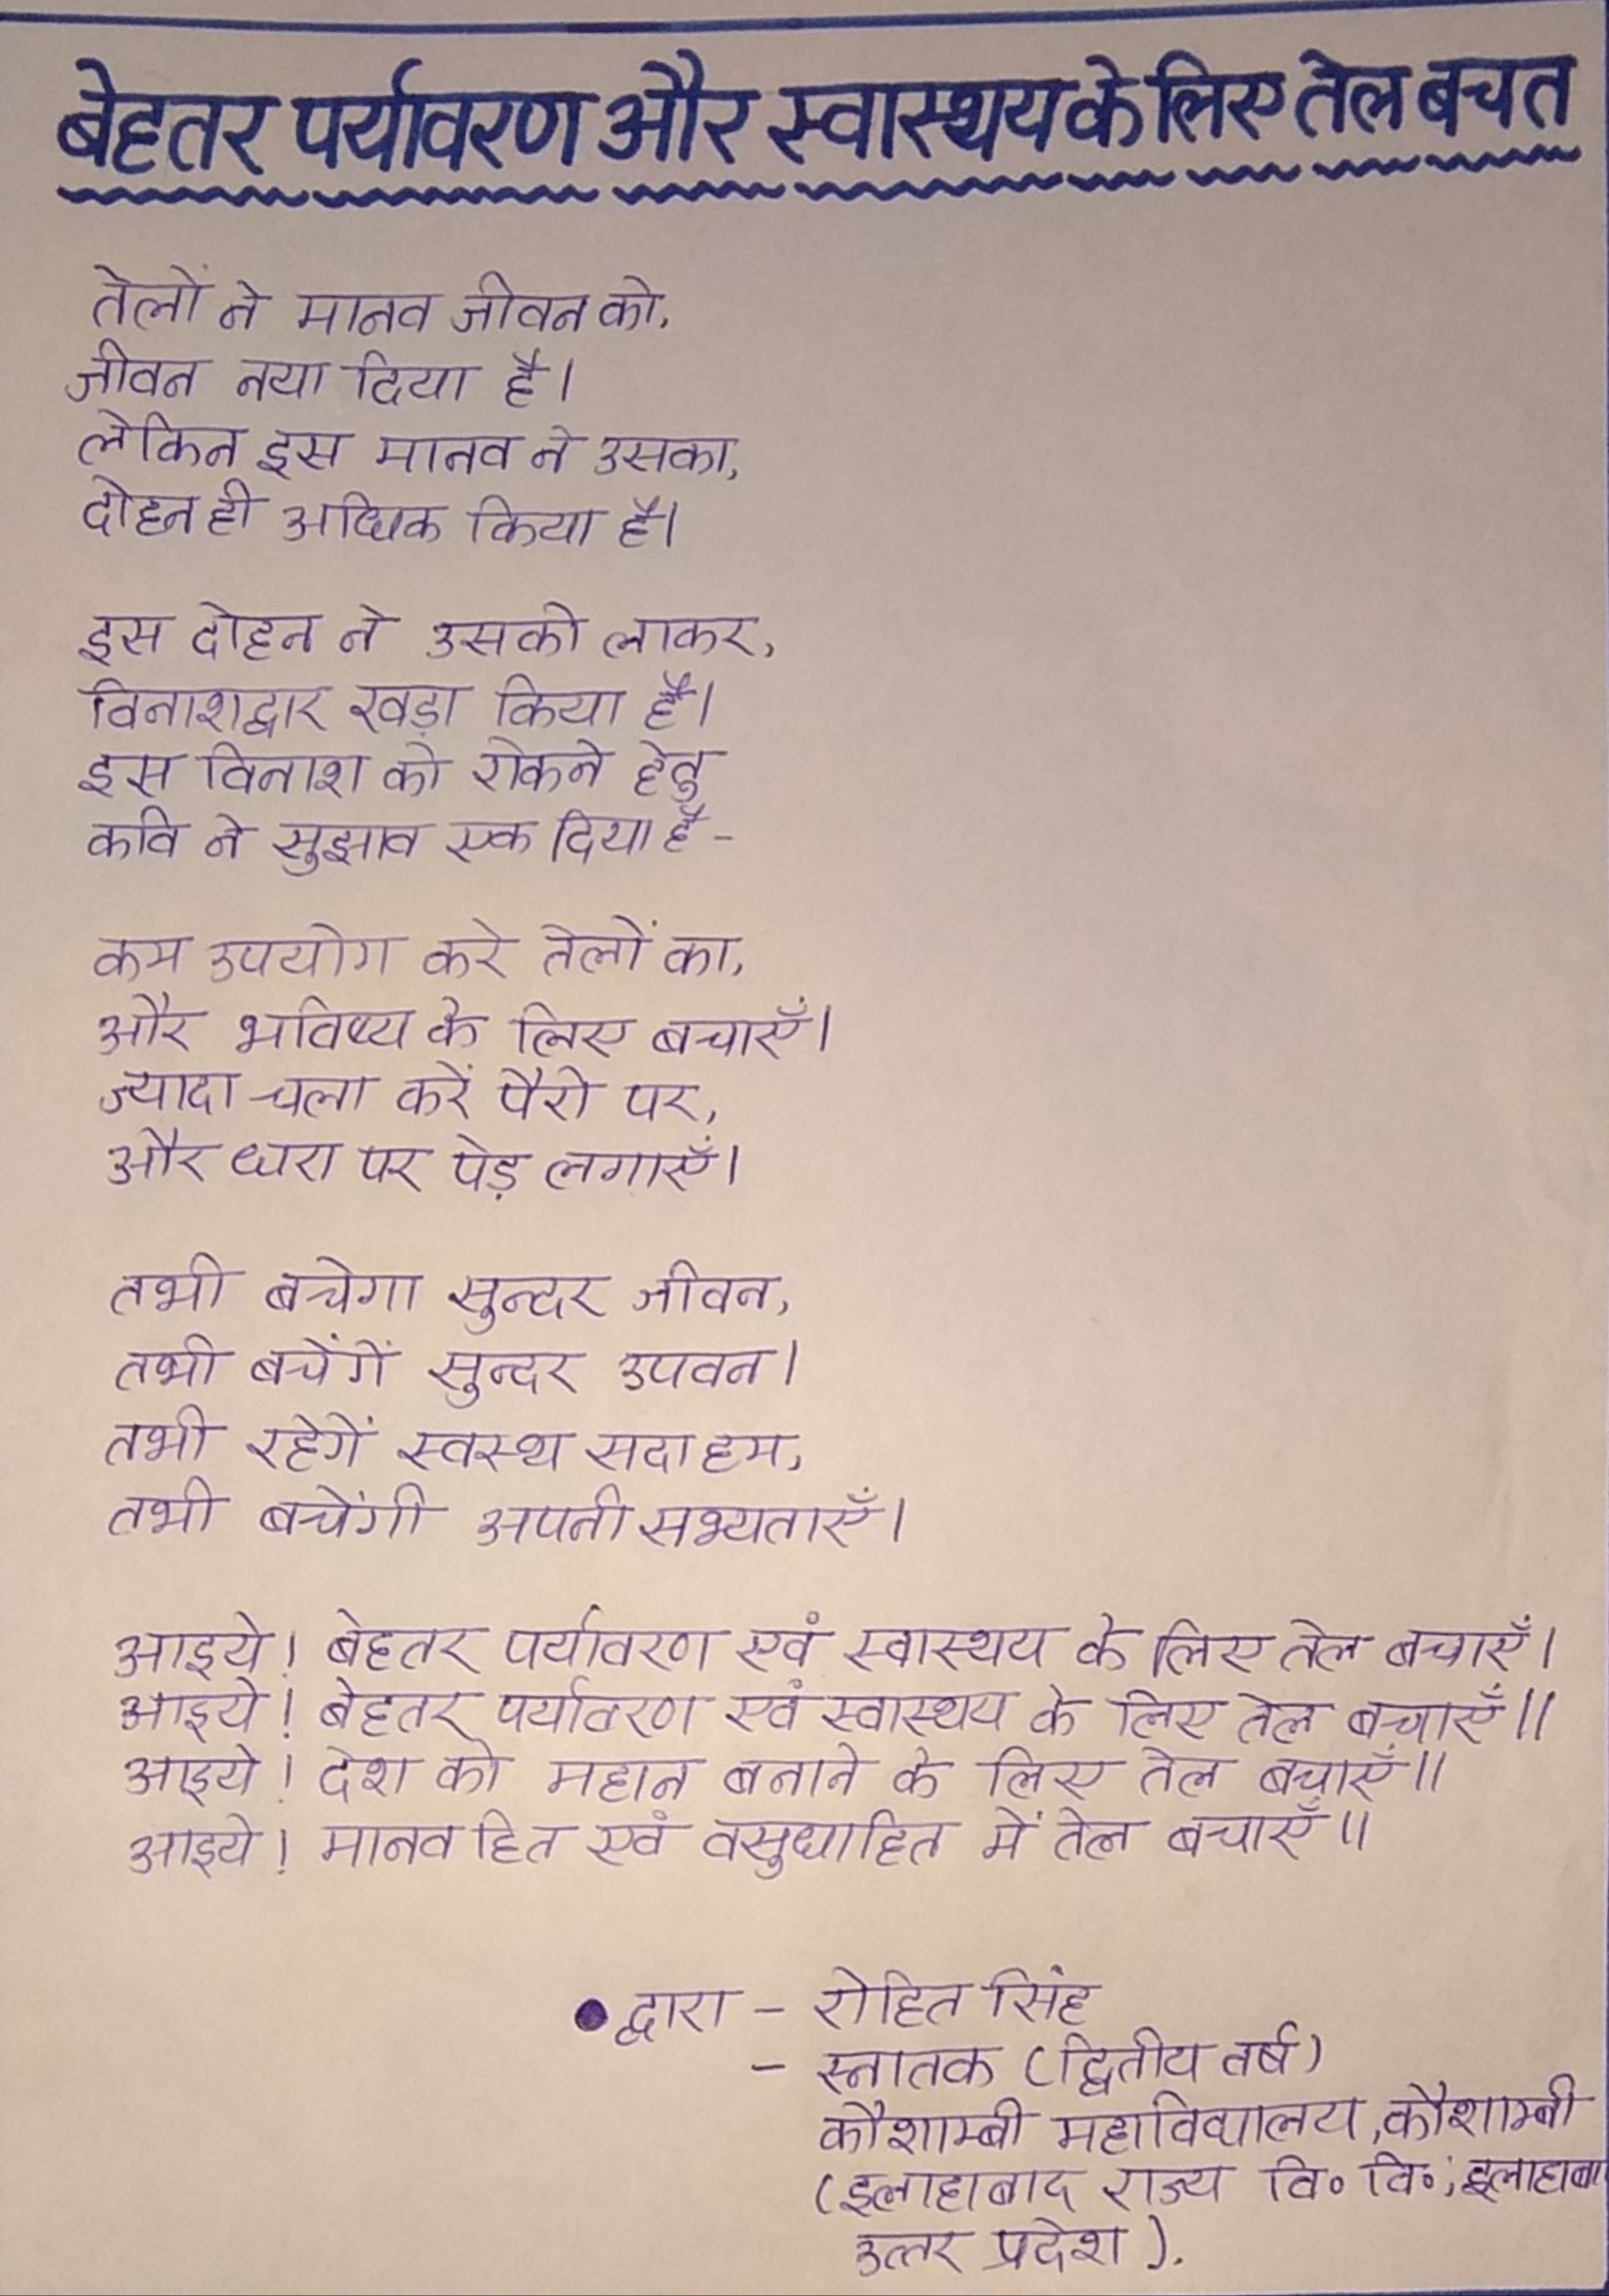 बेहतर पर्यावरण और स्वास्थय के लिए तेल बचत
तेलों ने मानव जीवन को,
जीवन नया दिया है।
लेकिन इस मानव ने उसका,
दोहन ही अधिक किया है।
इस दोहन ने उसको लाकर,
विनाशद्वार खड़ा किया है।
इस विनाश को रोकने हेतु
कवि ने सुझाव एक दिया है -
कम उपयोग करे तेलों का,
और भविष्य के लिए बचाएँ।
ज्यादा चला करें पैरो पर,
और धरा पर पेड़ लगाएँ।
तभी बचेगा सुन्दर जीवन,
तभी बचेंगें सुन्दर उपवन।
तभी रहेगें स्वस्थ सदा हम,
तभी बचेंगी अपनी सभ्यताएँ।
आइये! बेहतर पर्यावरण एवं स्वास्थय के लिए तेल बचाएँ।
आइये! बेहतर पर्यावरण एवं स्वास्थय के लिए तेल बचाएँ॥
आइये! देश को महान बनाने के लिए तेल बचाएँ॥
आइये! मानव हित एवं वसुधाहित में तेल बचाएँ॥
• द्वारा - रोहित सिंह
- स्नातक (द्वितीय वर्ष)
कौशाम्बी महाविद्यालय, कौशाम्बी
(इलाहाबाद राज्य वि० वि०, इलाहाबा
उत्तर प्रदेश).